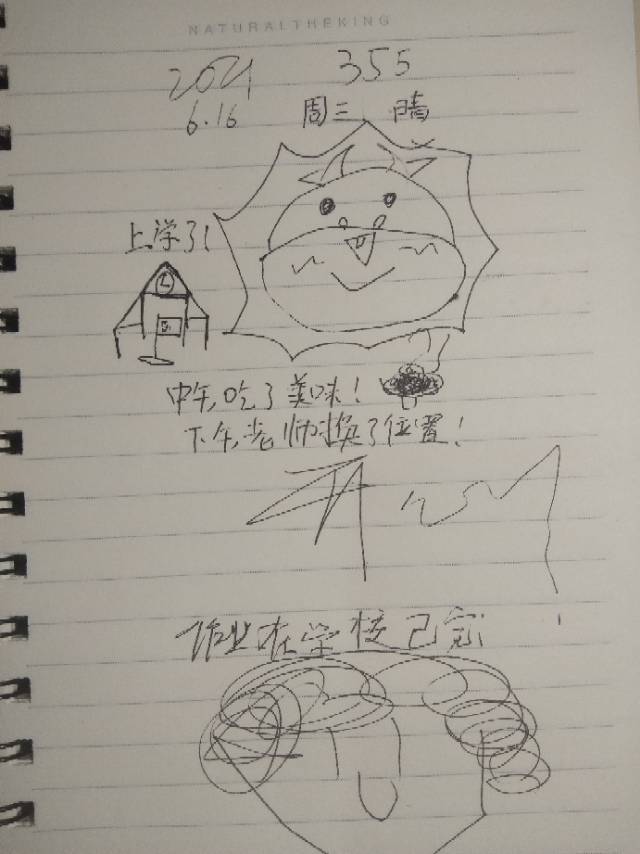 NATURALTHEKING
2021 355
6.16 周三 晴
上学了!
中午,吃了美味!
下午,老师换了位置!
开心!
作业在学校已完